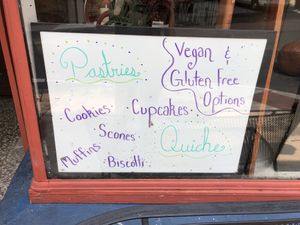 Pastries
Vegan &
Gluten Free
Options
Cookies · Cupcakes ·
Scones
Quiche
Muffins
Biscotti